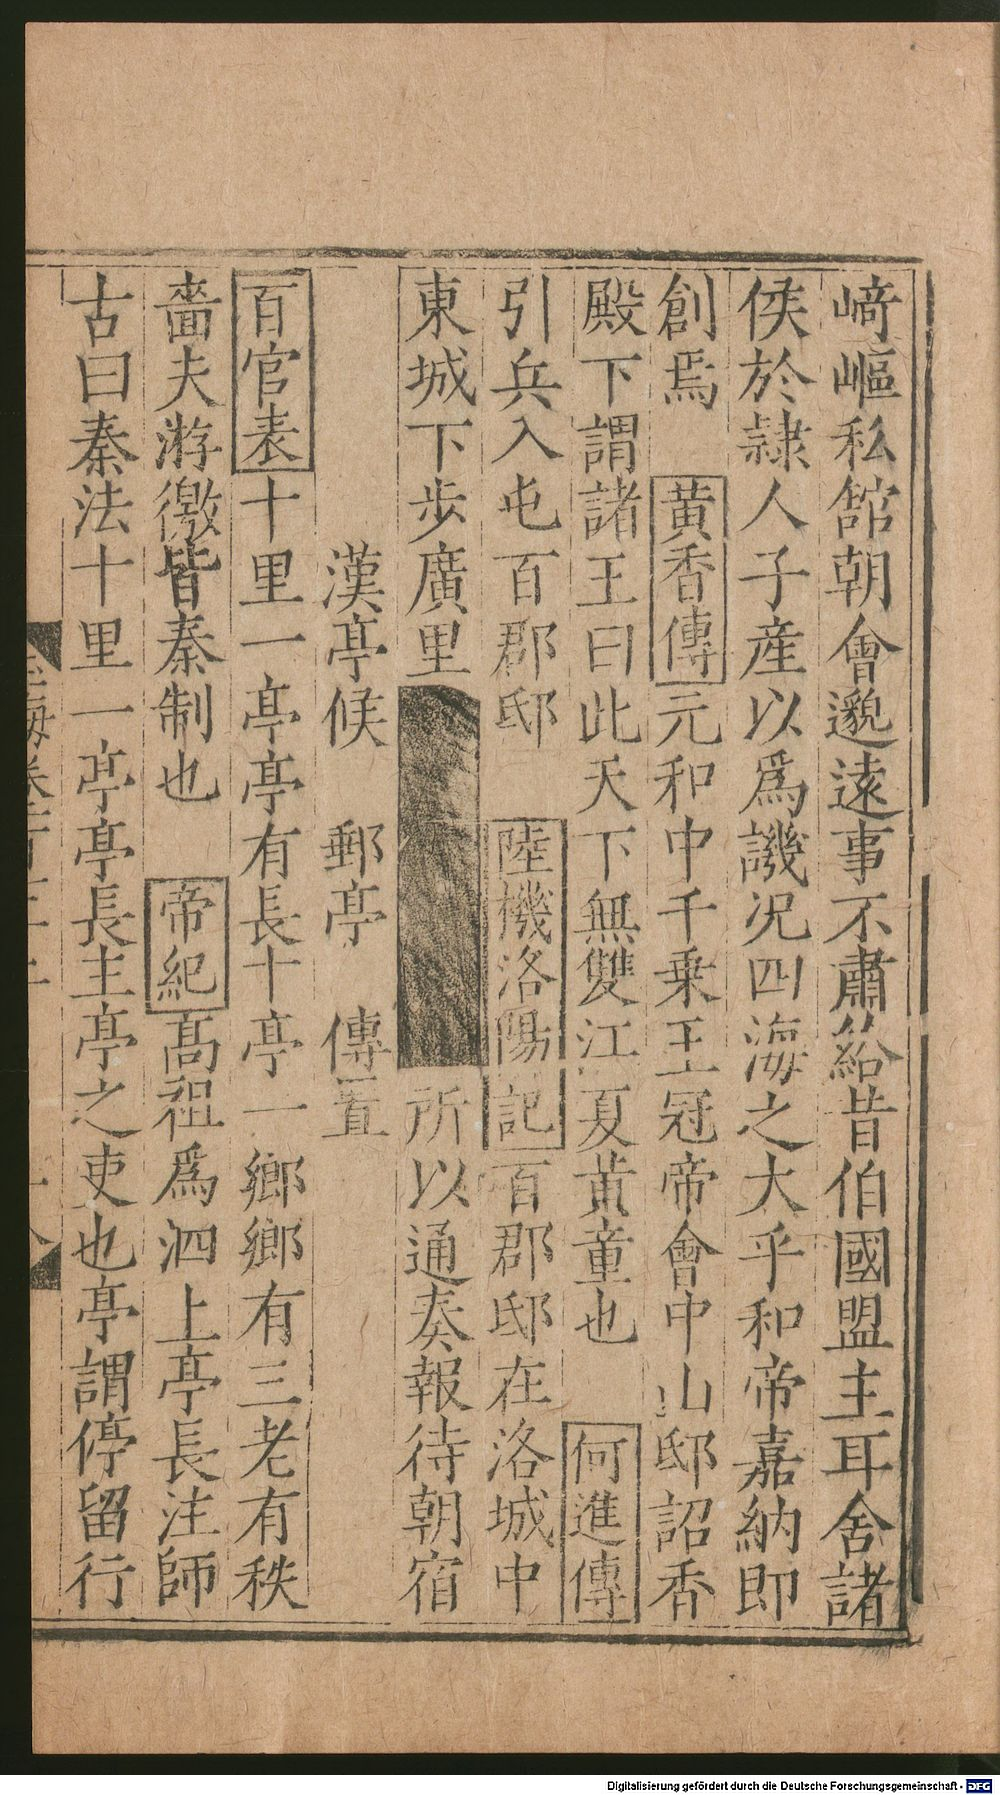 﨑嶇私舘朝會邈遠事不肅給昔伯國盟主耳舍諸
侯於隷人子産以爲譏况四海之大乎和帝嘉納即
創焉　黄香傳元和中千乗王冠帝會中山邸詔香
殿下謂諸王曰此天下無雙江夏黄童也　何進傳
引兵入屯百郡邸　陸機洛陽記百郡邸在洛城中
東城下步廣里所以通奏報待朝宿
漢亭候　郵亭　傳置
百官表十里一亭亭有長十亭一鄉鄉有三老有秩
嗇夫游徼皆秦制也　帝紀髙祖爲泗上亭長注師
古曰秦法十里一亭亭長主亭之吏也亭謂停留行
Digitalisierung gefördert durch die Deutsche Forschungsgemeinschaft - DFG